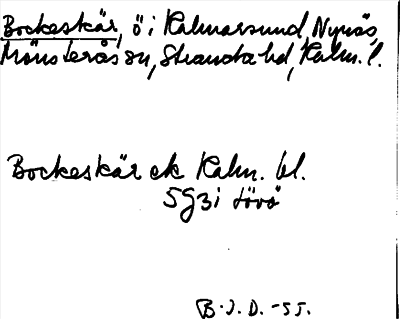 Bockeskär, ö i Kalmarsund, Nynäs,
Mönsterås sn, Stranda hd, Kalm. l.
Bockeskär ek Kalm. bl.
5G3i Lövö
B.J.D. -55.